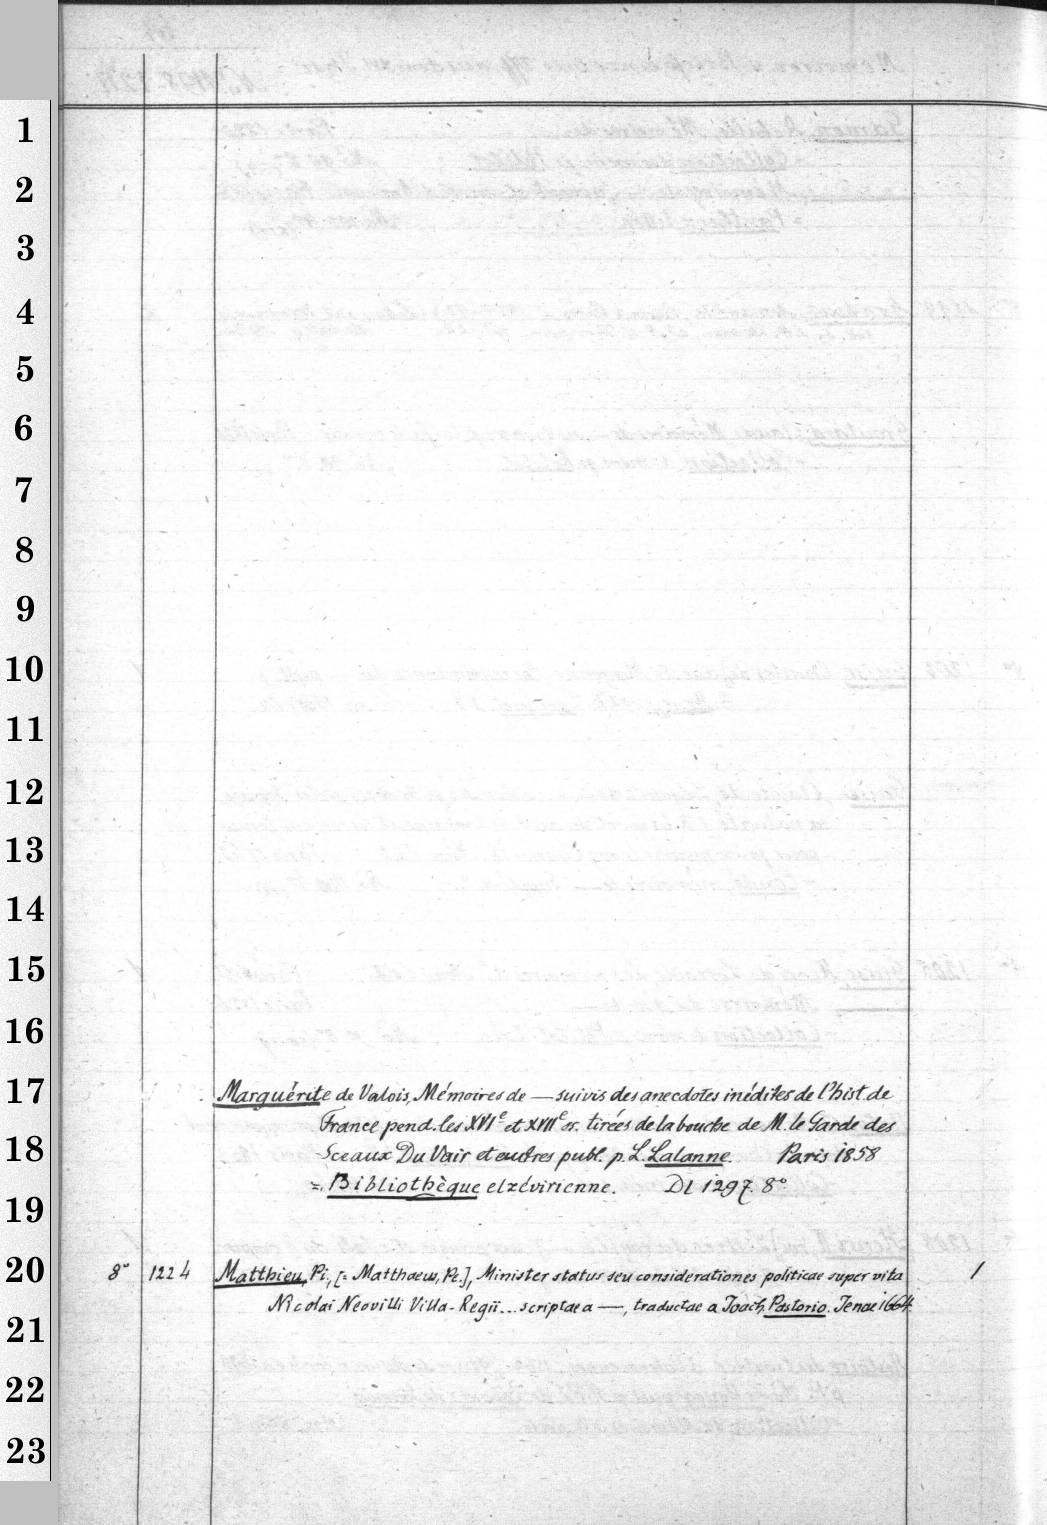 1
2
3
4
5
6
7
8
9
10
11
12
13
14
15
16
17 Marguérite de Valois, Mémoires de — suivis des anecdotes inédites de l'hist. de
France pend. les XVIe et XVIIe ss. tirées de la bouche de M. le Garde des
18 Sceaux Du Vair et autres publ. p. L. Lalanne. Paris 1858
19 = Bibliothèque elzévirienne. Dl 1297. 8°
20 8° 1224 Matthieu, Pi., [= Matthaeus, Pt.], Minister status seu considerationes politicae super vita 1
21 Nicolai Neovilli Villa-Regii... scriptae a —, traductae a Joach. Pastorio. Jenae 1664.
22
23